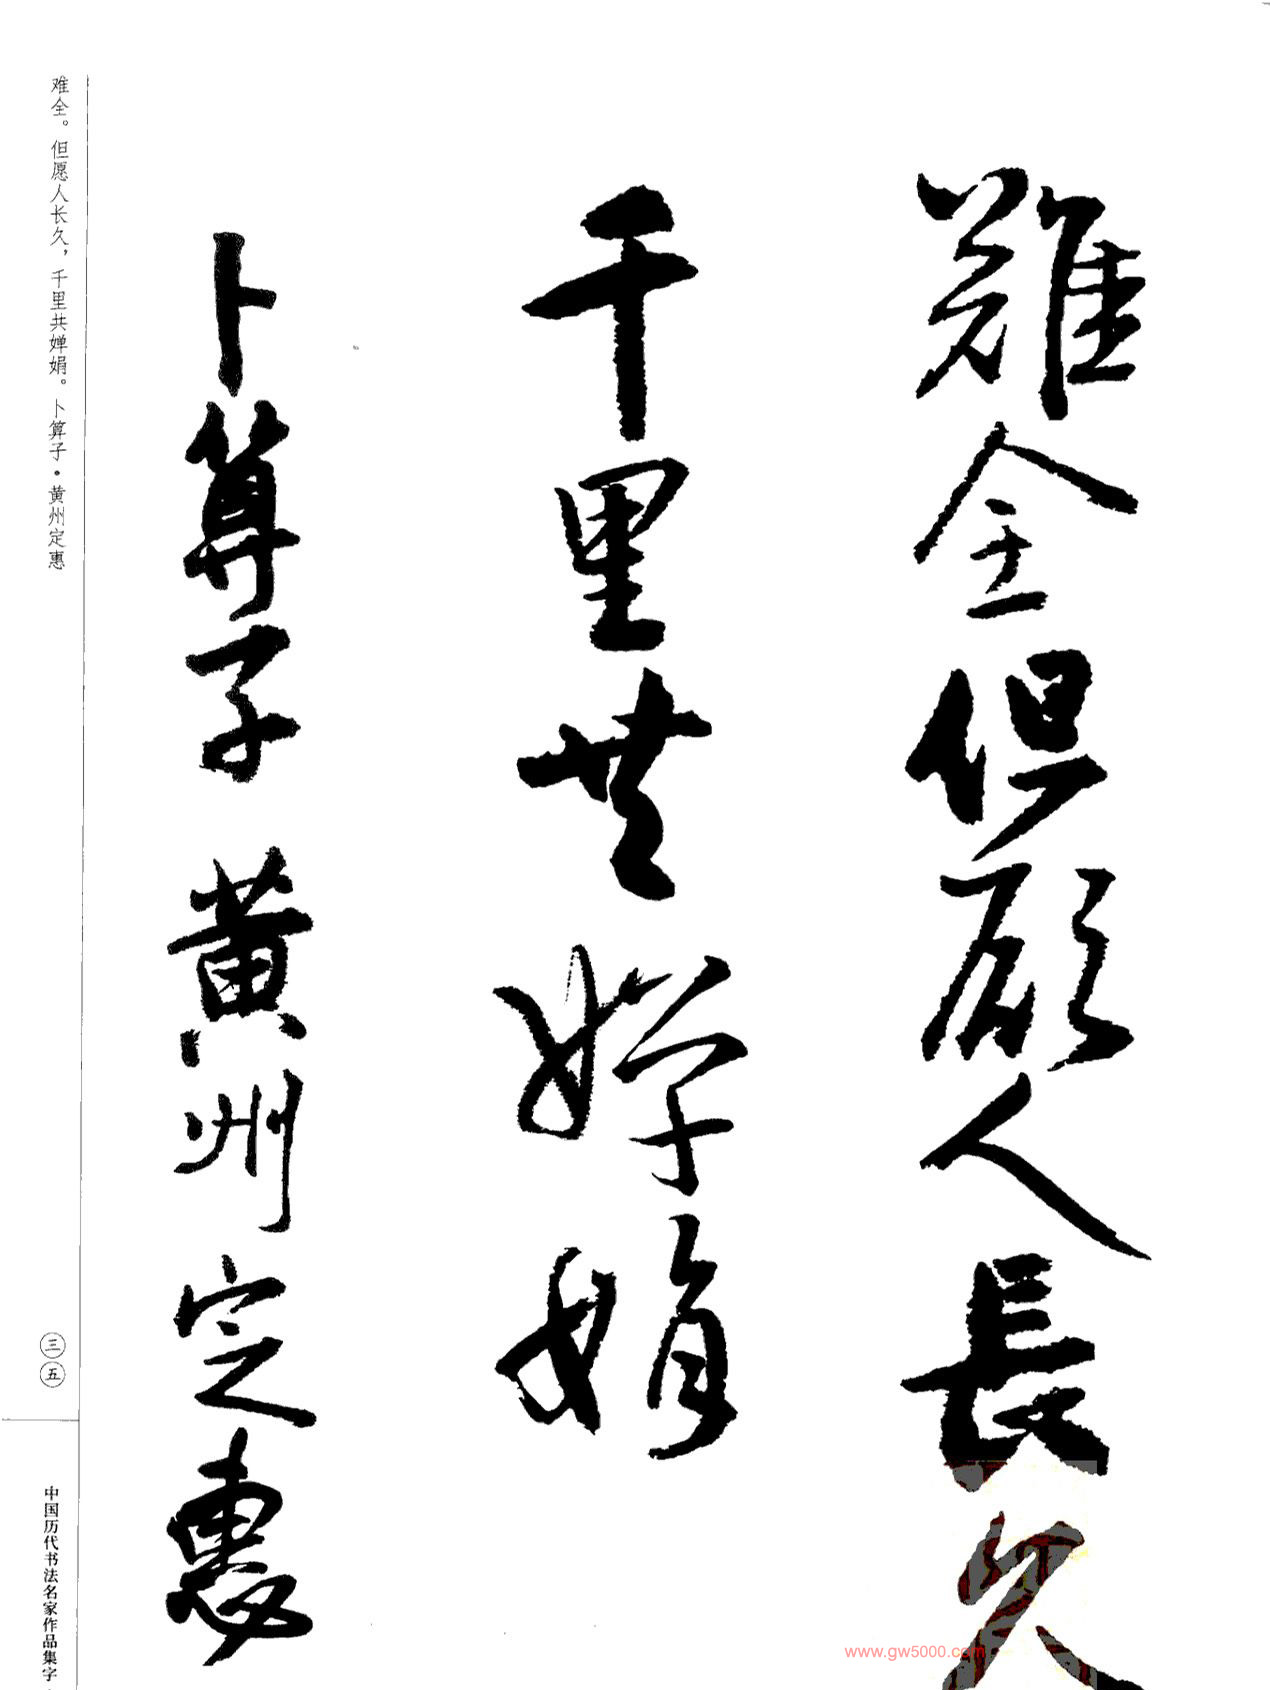 難全但願人長久
千里共嬋娟
卜算子黃州定惠
难全。但愿人长久，千里共婵娟。卜算子·黄州定惠
三五
中国历代书法名家作品集字
www.gw5000.com